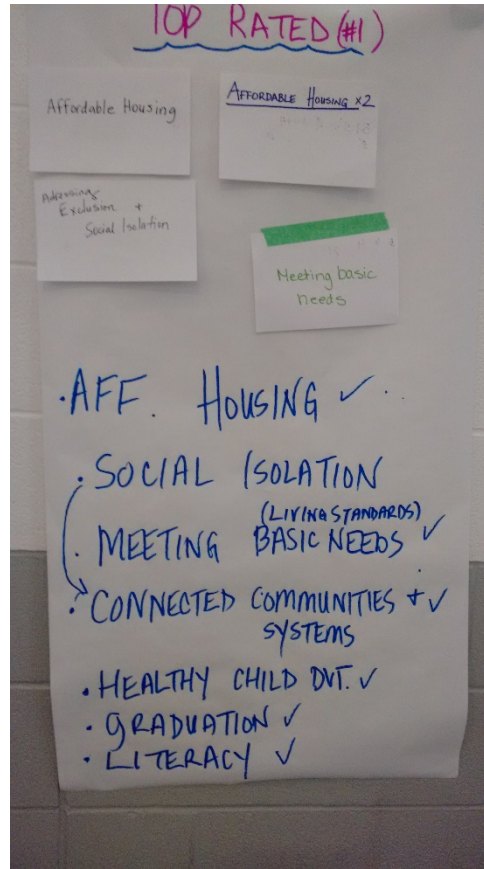 TOP RATED (#1)
Affordable Housing
AFFORDABLE HOUSING x2
Adressing
Exclusion +
Social Isolation
Meeting basic
needs
• AFF. HOUSING ✓
• SOCIAL ISOLATION
(LIVING STANDARDS)
• MEETING BASIC NEEDS ✓
• CONNECTED COMMUNITIES + ✓
SYSTEMS
• HEALTHY CHILD DVT. ✓
• GRADUATION ✓
• LITERACY ✓